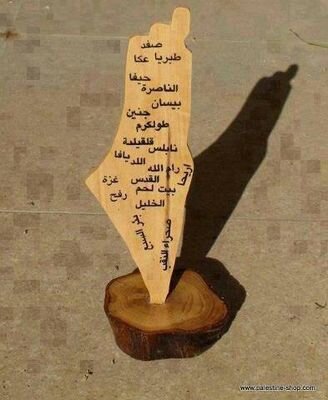 صفد
عكا طبريا
حيفا
الناصرة
بيسان
جنين
طولكرم
قلقيلية
نابلس
يافا اللد
رام الله
اريحا
القدس
غزة
بيت لحم
رفح
الخليل
بئر السبع
صحراء النقب
www.palestine-shop.com